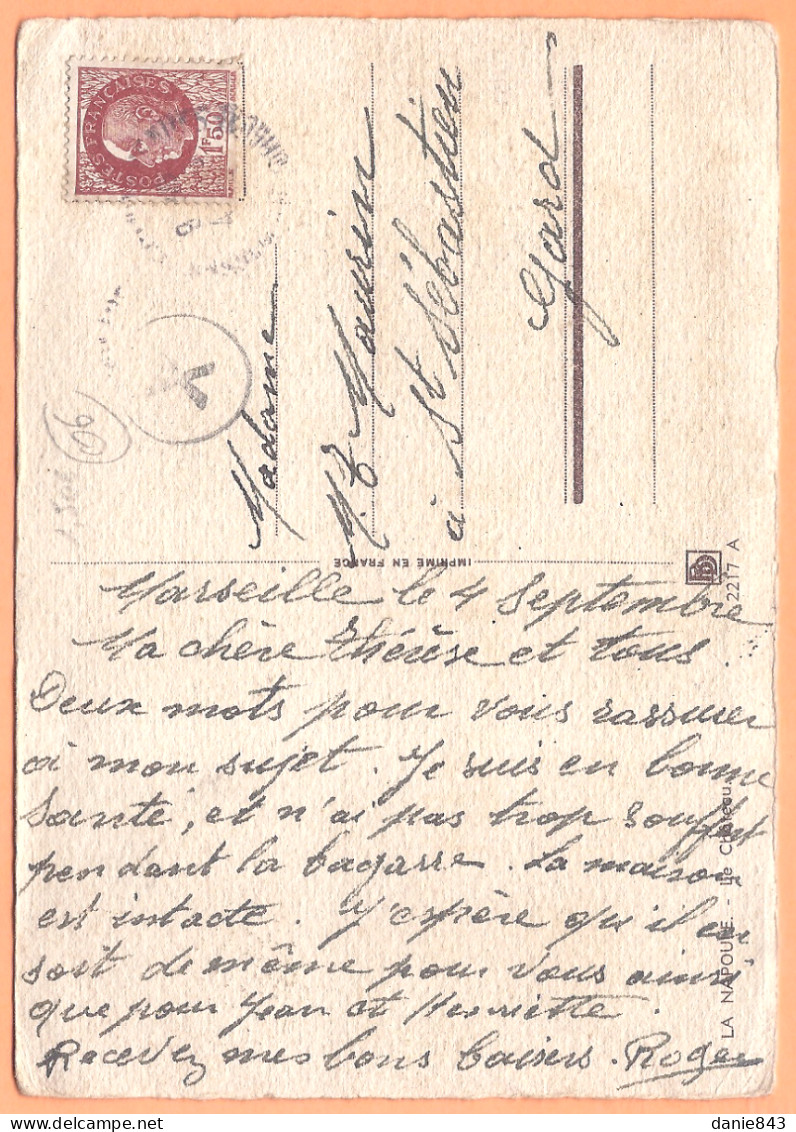 POSTES FRANÇAISES
1F50
Madame
Mourin
à St Sébastien
Gard
IMPRIMÉ EN FRANCE
2217 A
LA NAPOULE. - Le Château.
06
Marseille le 4 Septembre
Ma chère Thérèse et tous.
Deux mots pour vous rassurer
à mon sujet. Je suis en bonne
santé, et n'ai pas trop souffert
pendant la bagarre. La maison
est intacte. J'espère qu'il en
soit de même pour vous ainsi
que pour Jean et Henriette.
Recevez mes bons baisers. Roger
danie843